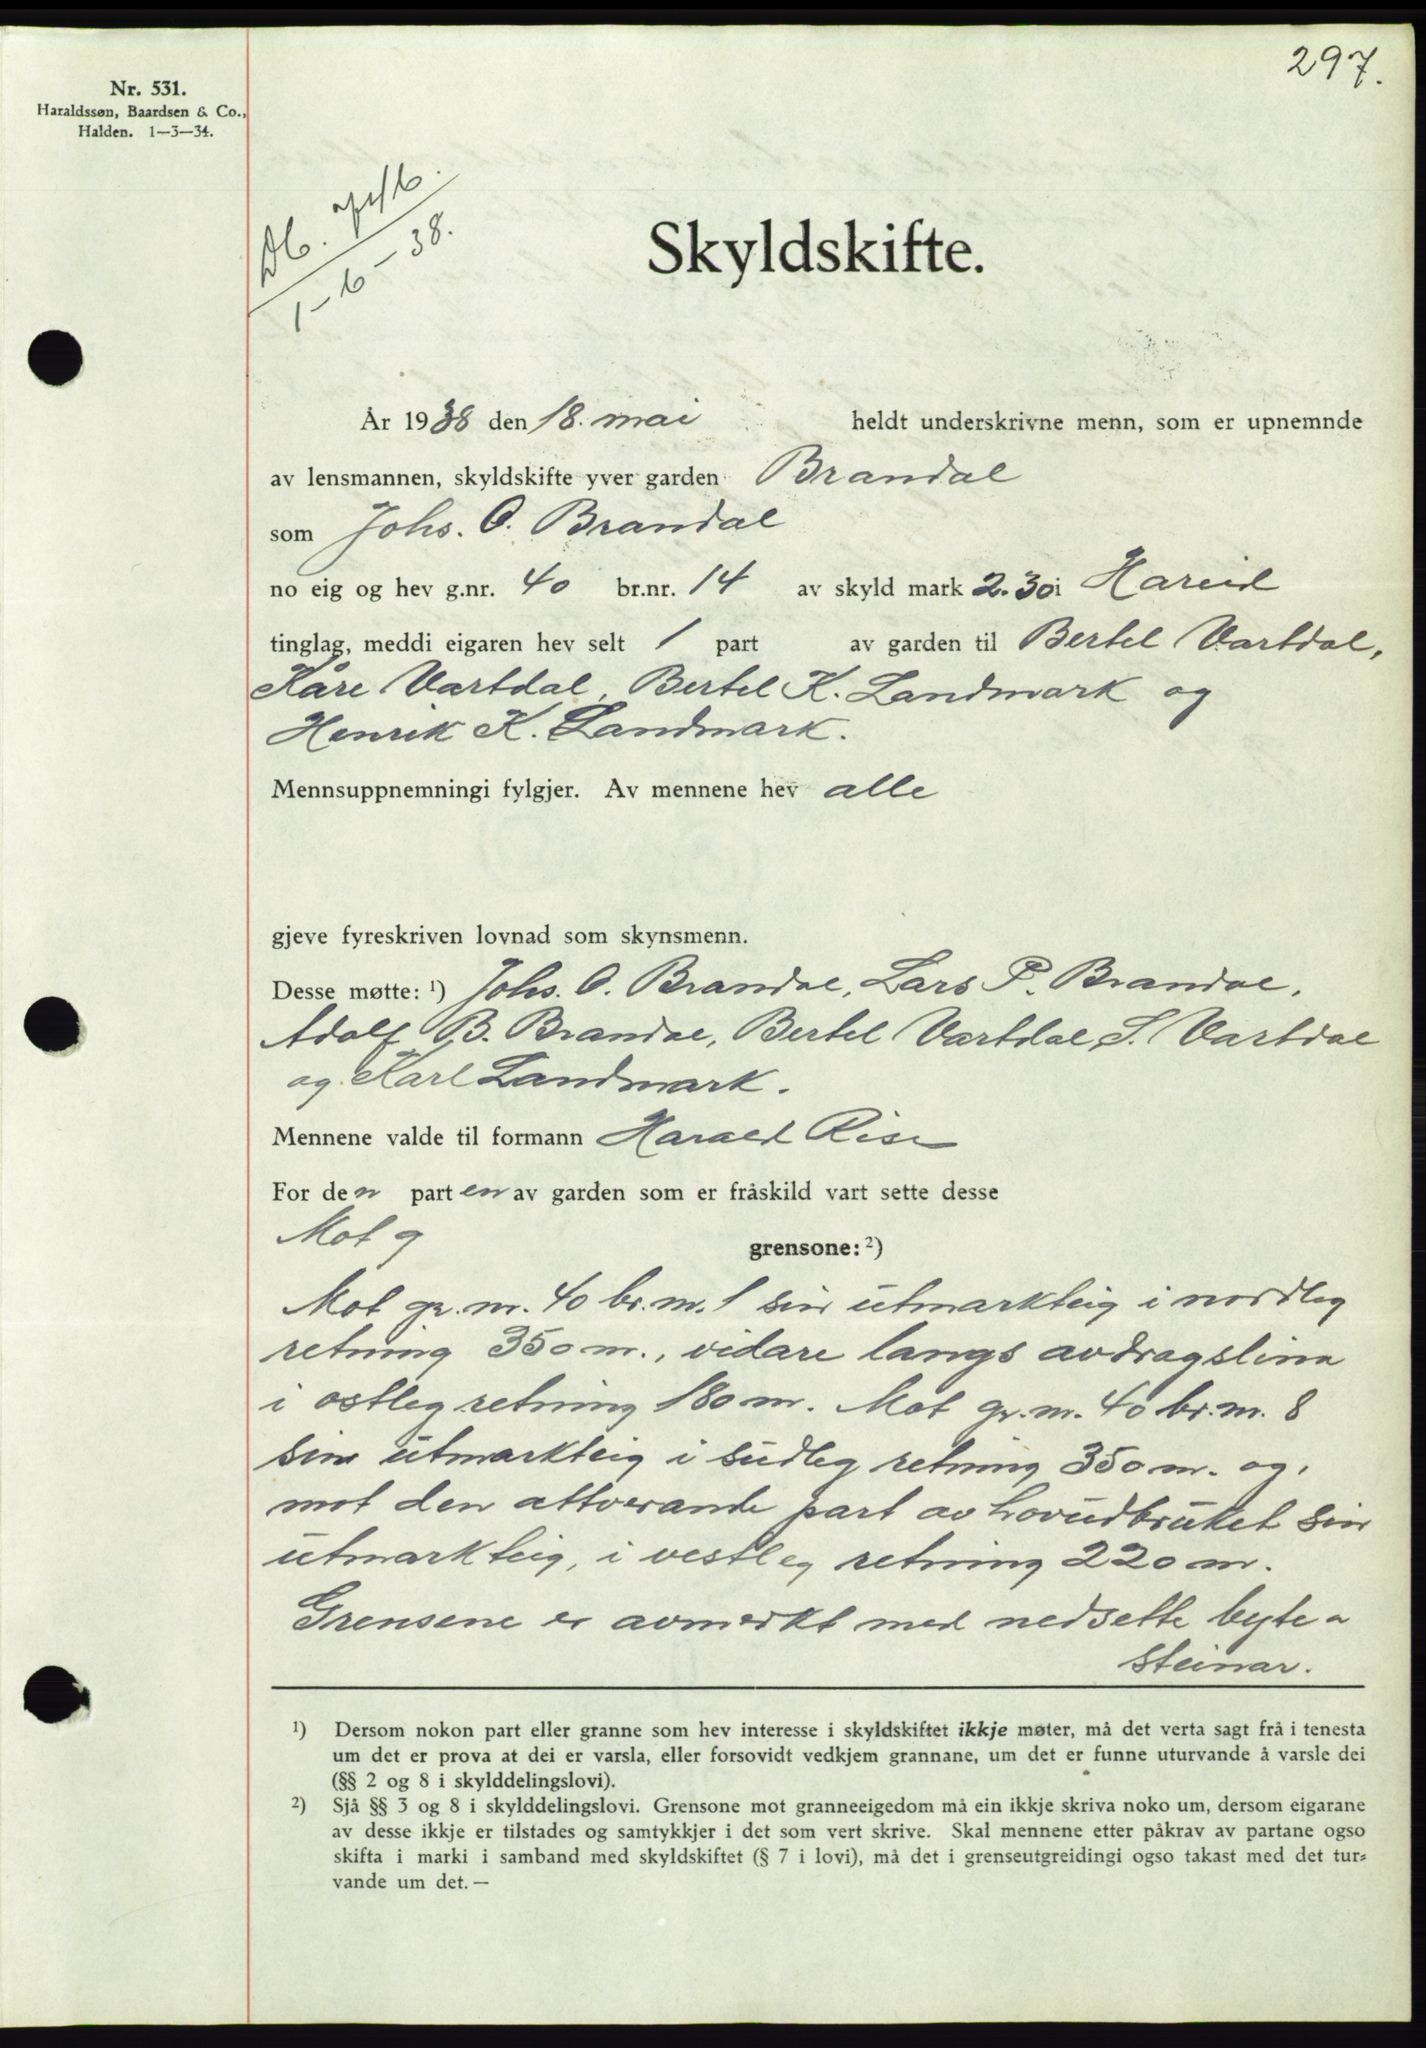 297.
Nr. 531.
Haraldssøn, Baardsen & Co.,
Halden. 1—3—34.
Db.
1-6-38.
Skyldskifte.
År 1938 den 18. mai heldt underskrivne menn, som er upnemnde
av lensmannen, skyldskifte yver garden Brandal
som Johs. O. Brandal
no eig og hev g.nr. 40 br.nr. 14 av skyld mark 2.30 i Hareid
tinglag, meddi eigaren hev selt 1 part av garden til Bertel Vartdal,
Kåre Vartdal, Bertel K. Landmark og
Henrik K. Landmark.
Mennsuppnemningi fylgjer. Av mennene hev alle
gjeve fyreskriven lovnad som skynsmenn.
Desse møtte: ¹) Johs. O. Brandal, Lars P. Brandal,
Adolf B. Brandal, Bertel Vartdal, S. Vartdal
og Karl Landmark.
Mennene valde til formann Harald Rise
For den parten av garden som er fråskild vart sette desse
Mot g
grensone: ²)
Mot gr. nr. 40 br. nr. 1 sin utmarkteig i nordleg
retning 350 m., vidare langs avdragslina
i ostleg retning 180 m. Mot gr. nr. 40 br. nr. 8
sin utmarkteig i sudleg retning 350 m. og,
mot den attverande part av hovudbruket sin
utmarkteig, i vestleg retning 220 m.
Grensene er avmerkt med nedsette byte-
steinar.
¹) Dersom nokon part eller granne som hev interesse i skyldskiftet ikkje møter, må det verta sagt frå i tenesta
um det er prova at dei er varsla, eller forsovidt vedkjem grannane, um det er funne uturvande å varsle dei
(§§ 2 og 8 i skylddelingslovi).
²) Sjå §§ 3 og 8 i skylddelingslovi. Grensone mot granneeigedom må ein ikkje skriva noko um, dersom eigarane
av desse ikkje er tilstades og samtykkjer i det som vert skrive. Skal mennene etter påkrav av partane ogso
skifta i marki i samband med skyldskiftet (§ 7 i lovi), må det i grenseutgreidingi ogso takast med det tur-
vande um det. —